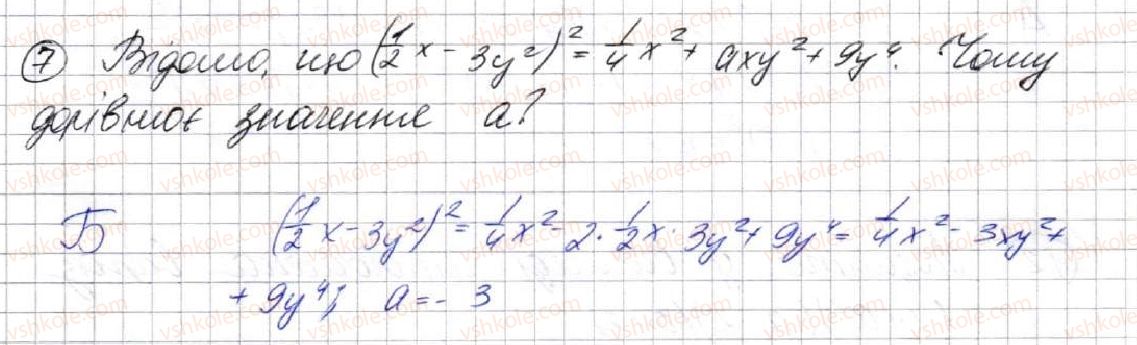 ⑦ Відомо, що (1/2 x - 3y²)² = 1/4 x² + axy² + 9y⁴. Чому
дорівнює значення a?
Б (1/2 x - 3y²)² = 1/4 x² - 2 · 1/2 x · 3y² + 9y⁴ = 1/4 x² - 3xy² +
+ 9y⁴; a = - 3